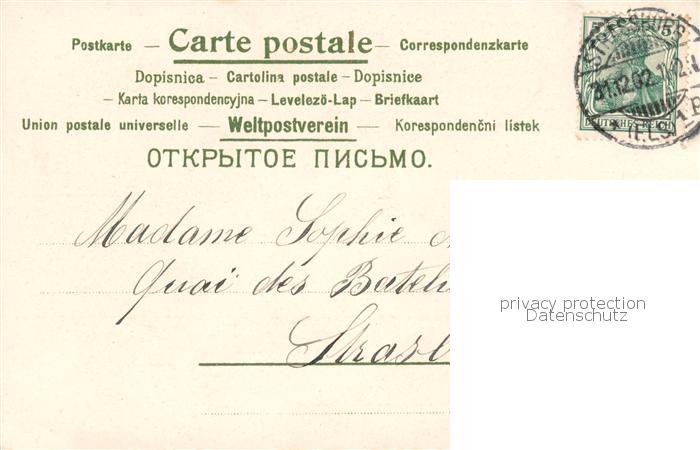 Postkarte — Carte postale — Correspondenzkarte
Dopisnica — Cartolina postale — Dopisnice
— Karta korespondencyjna — Levelező-Lap — Briefkaart
Union postale universelle — Weltpostverein — Korespondenční lístek
ОТКРЫТОЕ ПИСЬМО.
DEUTSCHES REICH
Madame Sophie
Quai des Batel
Strasb
privacy protection
Datenschutz